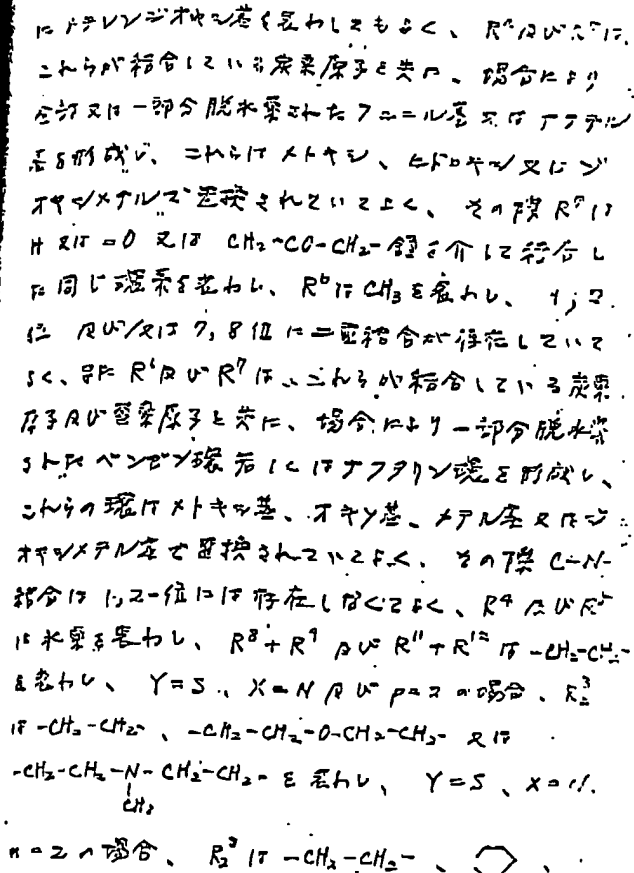 にメチレンジオキシ基を表わしてもよく、R⁷及び は、
これらが結合している炭素原子と共に、場合により
全部又は一部分脱水素されたフェニル基又はナフチル
基を形成し、これらはメトキシ、ヒドロキシ又はジ
オキシメチルで置換されていてよく、その際R⁷は
H又は=O又はCH₂-CO-CH₂-鎖を介して結合し
た同じ環系を表わし、R⁶はCH₃を表わし、1,2
位及び/又は7,8位に二重結合が存在していて
よく、更にR⁶及びR⁷は、これらが結合している炭素
原子及び窒素原子と共に、場合により一部分脱水素
されたベンゼン環若しくはナフタリン環を形成し、
これらの環はメトキシ基、オキソ基、メチル基又はジ
オキシメチル基で置換されていてよく、その際C-N-
結合は1,2-位には存在しなくてよく、R⁴及びR⁵
は水素を表わし、R⁸+R⁹及びR¹¹+R¹²は-CH₂-CH₂-
を表わし、Y=S、X=N及びp=2の場合、R₂³
は-CH₂-CH₂-、-CH₂-CH₂-O-CH₂-CH₂-又は
-CH₂-CH₂-N-CH₂-CH₂-を表わし、Y=S、X=N、
CH₃
n=2の場合、R₂³は-CH₂-CH₂-、 、